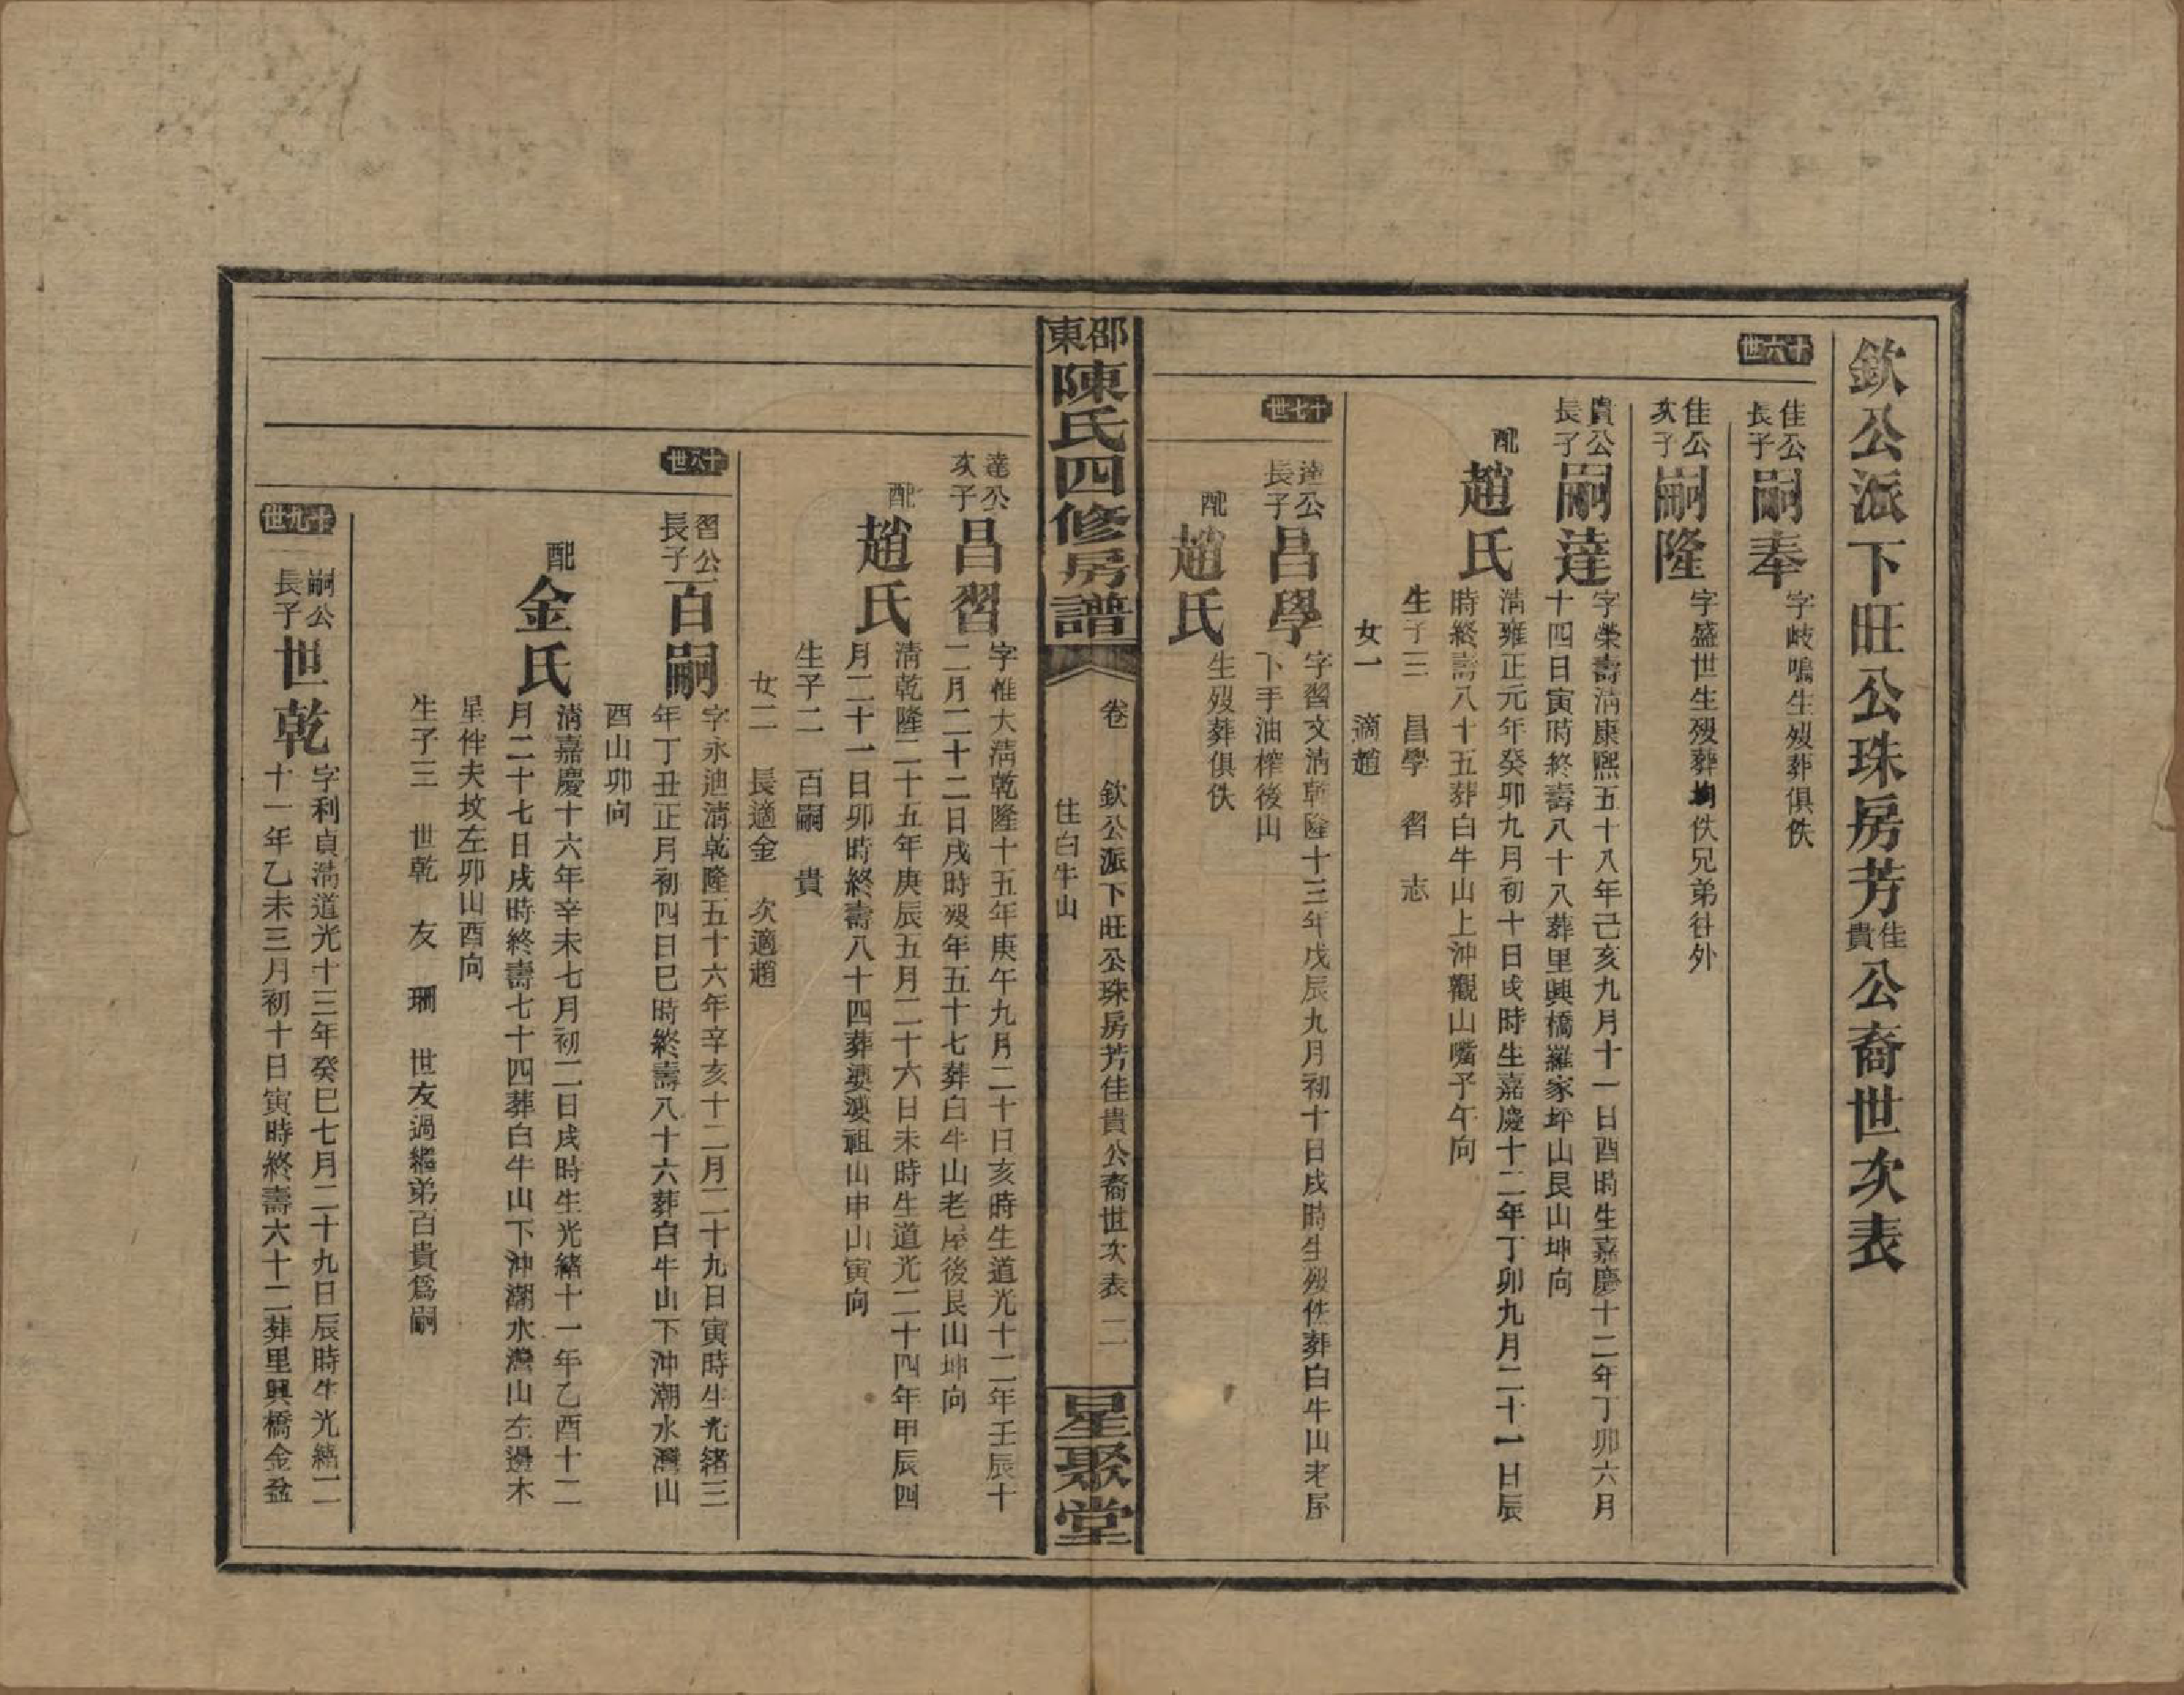 欽公派下旺公珠房芳佳貴公裔世次表
十六世
佳公長子
嗣奉
字岐鳴生歿葬俱佚
佳公次子
嗣隆
字盛世生歿葬均佚兄弟往外
貴公長子
嗣達
字榮壽清康熙五十八年己亥九月十一日酉時生嘉慶十二年丁卯六月
十四日寅時終壽八十八葬里興橋羅家坪山艮山坤向
配
趙氏
清雍正元年癸卯九月初十日戌時生嘉慶十二年丁卯九月二十一日辰
時終壽八十五葬白牛山上沖觀山嘴子午向
生子三 昌學 習 志
女一 適趙
十七世
達公長子
昌學
字習文清乾隆十三年戊辰九月初十日戌時生歿佚葬白牛山老屋
下手油榨後山
配
趙氏
生歿葬俱佚
邵東陳氏四修房譜
卷
欽公派下旺公珠房芳佳貴公裔世次表 二
住白牛山
星聚堂
達公次子
昌習
字惟大清乾隆十五年庚午九月二十日亥時生道光十二年壬辰十
二月二十二日戌時歿年五十七葬白牛山老屋後艮山坤向
配
趙氏
清乾隆二十五年庚辰五月二十六日未時生道光二十四年甲辰四
月二十一日卯時終壽八十四葬婆婆祖山申山寅向
生子二 百嗣 貴
女二 長適金 次適趙
十八世
習公長子
百嗣
字永迪清乾隆五十六年辛亥十二月二十九日寅時生光緒三
年丁丑正月初四日巳時終壽八十六葬白牛山下沖潮水灣山
酉山卯向
配
金氏
清嘉慶十六年辛未七月初二日戌時生光緒十一年乙酉十二
月二十七日戌時終壽七十四葬白牛山下沖潮水灣山左邊木
星伴夫坟左卯山酉向
生子三 世乾 友 珊 世友過繼弟百貴爲嗣
十九世
嗣公長子
世乾
字利貞清道光十三年癸巳七月二十九日辰時生光緒二
十一年乙未三月初十日寅時終壽六十二葬里興橋金盆